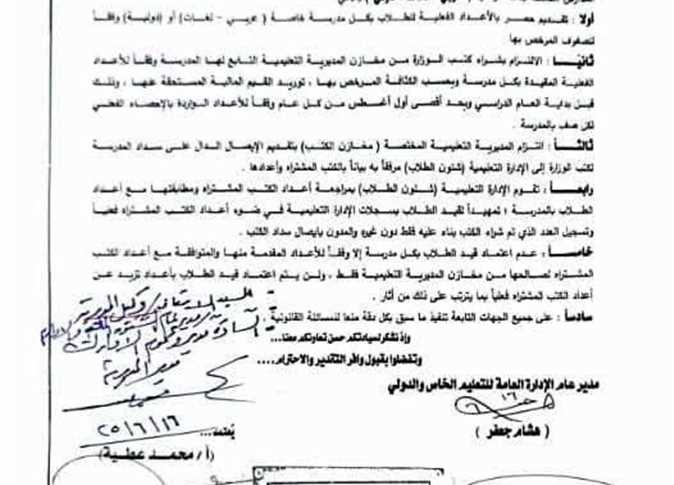 أولا : تقديم حصر بالأعداد الفعلية للطلاب بكل مدرسة خاصة ( عربي - لغات ) أو (دولية) وفقاً
للصفوف المرخص بها
ثانياً : الالتزام بشراء كتب الوزارة من مخازن المديرية التعليمية التابع لها المدرسة وفقاً للأعداد
الفعلية المقيدة بكل مدرسة وبحسب الكثافة المرخص بها ، توريد القيم المالية المستحقة عنها ، وذلك
قبل بداية العام الدراسي وبحد أقصى أول أغسطس من كل عام وفقاً للأعداد الواردة بالإحصاء الفعلي
لكل صف بالمدرسة .
ثالثاً : التزام المديرية التعليمية المختصة ( مخازن الكتب ) بتقديم الإيصال الدال على سداد المدرسة
لكتب الوزارة إلى الإدارة التعليمية (شئون الطلاب) مرفقاً به بياناً بالكتب المشتراه وأعدادها .
رابعاً : تقوم الإدارة التعليمية (شئون الطلاب) بمراجعة أعداد الكتب المشتراه ومطابقتها مع أعداد
الطلاب بالمدرسة ؛ تمهيداً لقيد الطلاب بسجلات الإدارة التعليمية في ضوء أعداد الكتب المشتراه فعلياً
وتسجيل العدد الذي تم شراء الكتب بناء عليه فقط دون غيره والمدون بإيصال سداد الكتب .
خامساً : عدم اعتماد قيد الطلاب بكل مدرسة إلا وفقاً للأعداد المقدمة منها والمتوافقة مع أعداد الكتب
المشتراه لصالحها من مخازن المديرية التعليمية فقط ، ولن يتم اعتماد قيد الطلاب بأعداد تزيد عن
أعداد الكتب المشتراه فعلياً بما يترتب على ذلك من آثار .
سادساً : على جميع الجهات التابعة تنفيذ ما سبق بكل دقة منعا للمسائلة القانونية
وإذ نشكر لسيادتكم حسن تعاونكم معنا...
وتفضلوا بقبول وافر التقدير والاحترام....
مدير عام الإدارة العامة للتعليم الخاص والدولي
( هشام جعفر )
مدير المديرية
٢٥/٦/١٦
يعتمد...
(أ / محمد عطية)